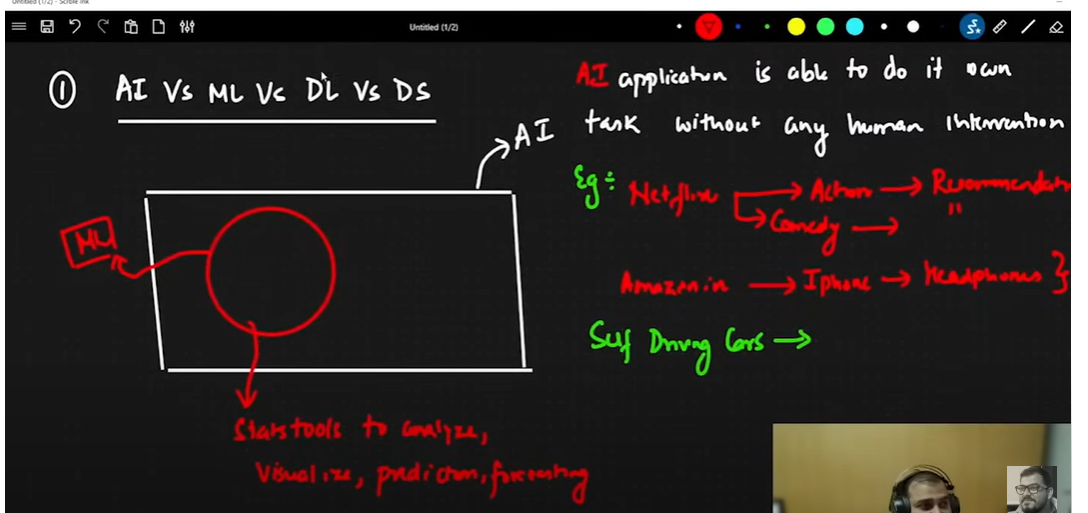 Untitled (1/2) - Scrible Ink
Untitled (1/2)
① AI Vs ML Vs DL Vs DS
AI
ML
Stats tools to analyze,
Visualize, prediction, forecasting
AI application is able to do it own
task without any human intervention
Eg:- Netflix → Action → Recommendation
→ Comedy → "
Amazon.in → Iphone → Headphones }
Self Driving Cars →